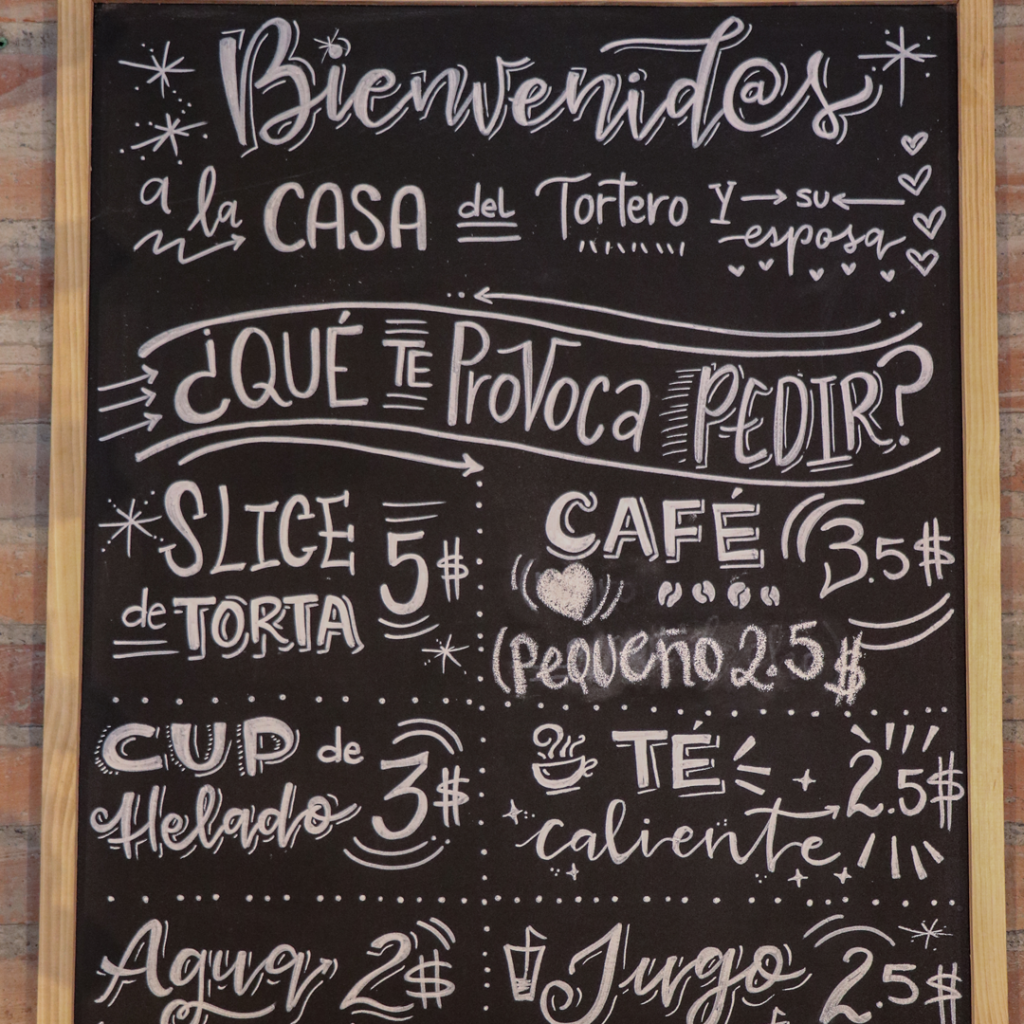 Bienvenid@s
a la CASA del Tortero Y su esposa
¿QUÉ TE ProVoca PEDIR?
SLICE de TORTA 5$
CAFÉ 3.5$
(Pequeño 2.5$
CUP de Helado 3$
TÉ caliente 2.5$
Agua 2$
Jugo 2.5$